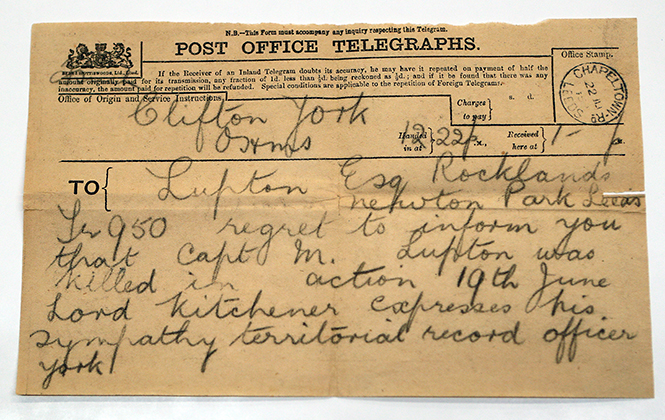 N.B.—This Form must accompany any inquiry respecting this Telegram.
POST OFFICE TELEGRAPHS.
Office Stamp.
If the Receiver of an Inland Telegram doubts its accuracy, he may have it repeated on payment of half the
amount originally paid for its transmission, any fraction of 1d. less than ½d. being reckoned as ½d.; and if it be found that there was any
inaccuracy, the amount paid for repetition will be refunded. Special conditions are applicable to the repetition of Foreign Telegrams.
CHAPELTOWN-RD
22 JU
LEEDS
Office of Origin and Service Instructions.
Charges to pay
s. d.
Clifton York
OHMS
Handed in at
12.22
Received here at
1-
TO
Lupton Esq Rocklands
newton Park Leeds
950 regret to inform you
that Capt M. Lupton was
killed in action 19th June
Lord Kitchener expresses his
sympathy territorial record officer
york